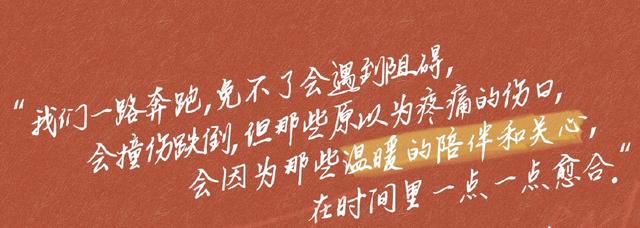 “我们一路奔跑,免不了会遇到阻碍,
会撞伤跌倒,但那些原以为疼痛的伤口,
会因为那些温暖的陪伴和关心,
在时间里一点一点愈合.”